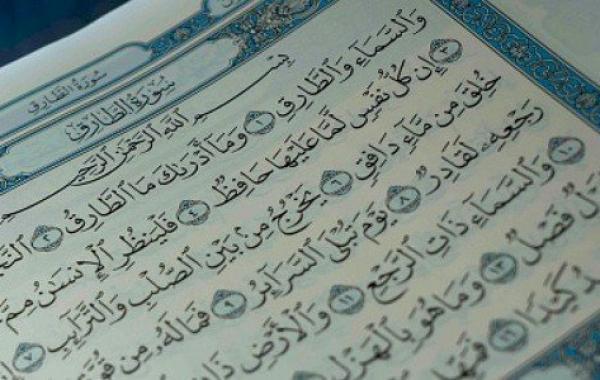 سُورَةُ الطَّارِقِ
سُورَةُ الطَّارِقِ
بِسْمِ ٱللَّهِ ٱلرَّحْمَٰنِ ٱلرَّحِيمِ
وَٱلسَّمَآءِ وَٱلطَّارِقِ ١ وَمَآ أَدْرَىٰكَ مَا ٱلطَّارِقُ ٢
٣ إِن كُلُّ نَفْسٍ لَّمَّا عَلَيْهَا حَافِظٌ ٤ فَلْيَنظُرِ ٱلْإِنسَٰنُ مِمَّ
خُلِقَ مِن مَّآءٍ دَافِقٍ ٦ يَخْرُجُ مِنۢ بَيْنِ ٱلصُّلْبِ وَٱلتَّرَآئِبِ ٧
رَجْعِهِۦ لَقَادِرٌ ٨ يَوْمَ تُبْلَى ٱلسَّرَآئِرُ ٩ فَمَا لَهُۥ مِن
١٠ وَٱلسَّمَآءِ ذَاتِ ٱلرَّجْعِ ١١ وَٱلْأَرْضِ ذَاتِ
فَصْلٌ ١٣ وَمَا هُوَ بِٱلْهَزْلِ
كَيْدًا ١٦